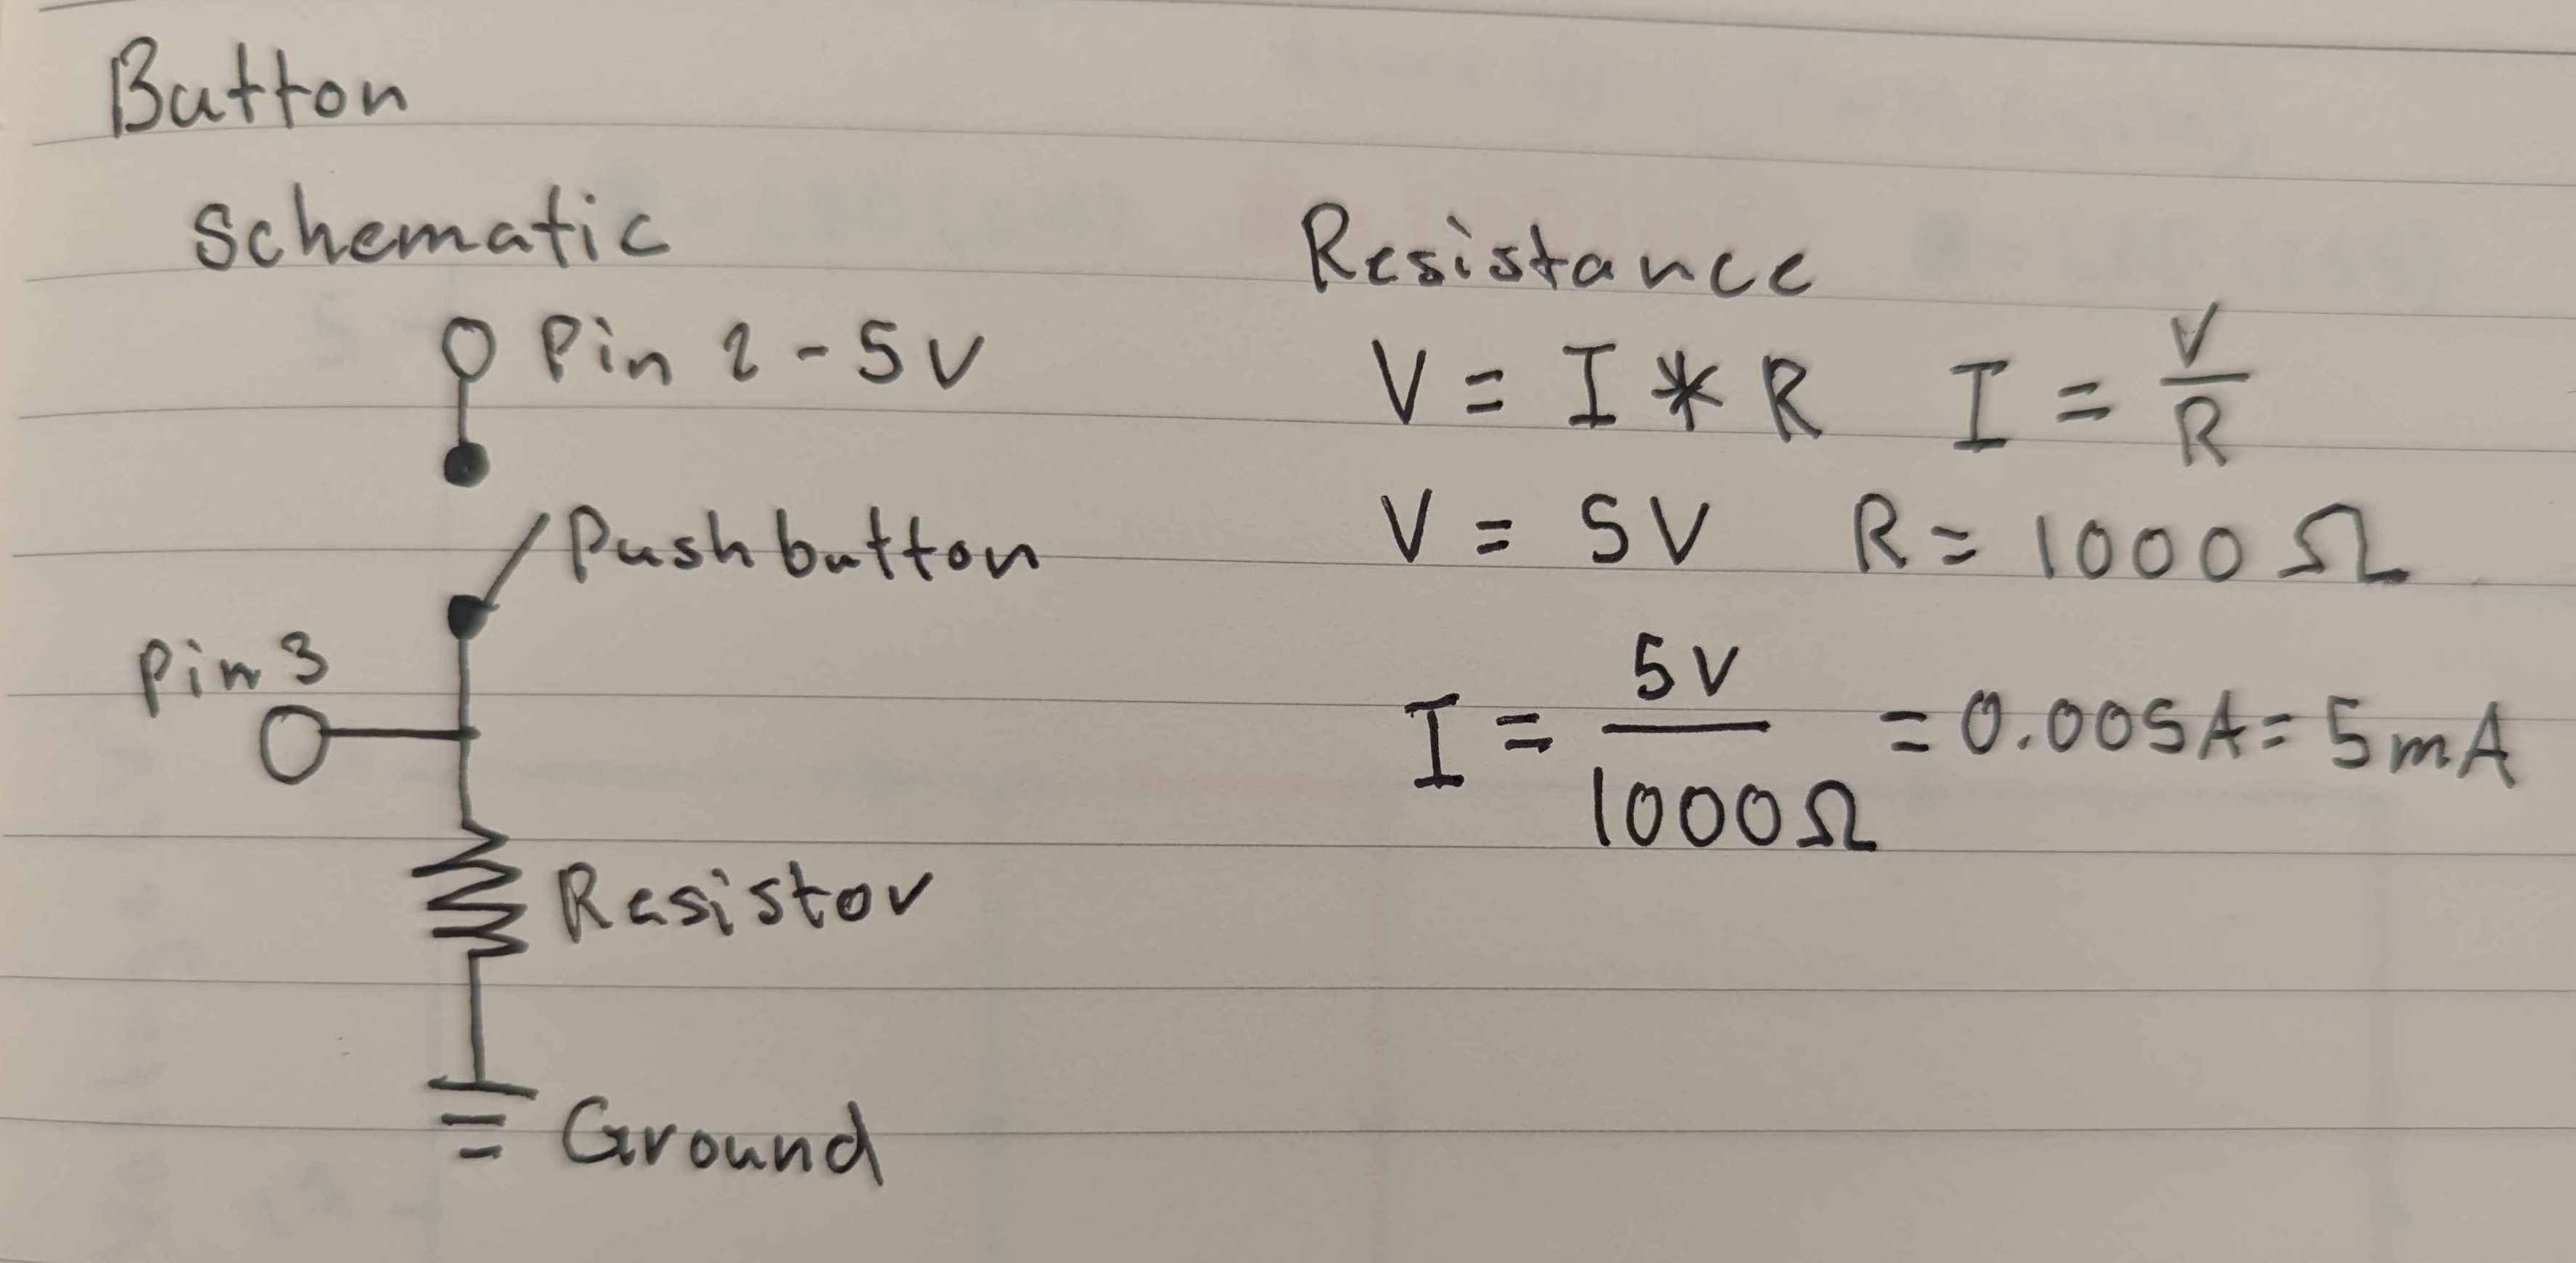 Button
Schematic
Pin 2 - 5V
Pushbutton
Pin 3
Resistor
Ground
Resistance
V = I * R I = V/R
V = 5V R = 1000 Ω
I = 5V/1000Ω = 0.005A = 5mA